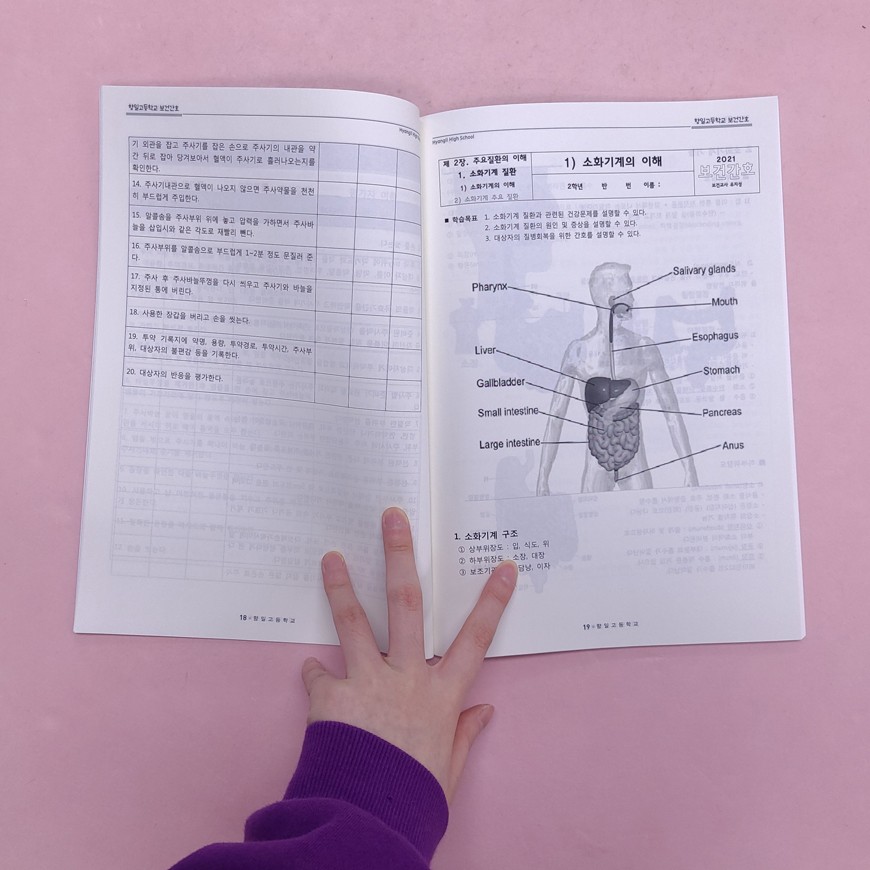 향일고등학교 보건간호
기 외관을 잡고 주사기를 잡은 손으로 주사기의 내관을 약
간 뒤로 잡아 당겨보아서 혈액이 주사기로 흘러나오는지를
확인한다.
14. 주사기내관으로 혈액이 나오지 않으면 주사약물을 천천
히 부드럽게 주입한다.
15. 알콜솜을 주사부위 위에 놓고 압력을 가하면서 주사바
늘을 삽입시와 같은 각도로 재빨리 뺀다.
16. 주사부위를 알콜솜으로 부드럽게 1~2분 정도 문질러 준
다.
17. 주사 후 주사바늘뚜껑을 다시 씌우고 주사기와 바늘을
지정된 통에 버린다.
18. 사용한 장갑을 버리고 손을 씻는다.
19. 투약 기록지에 약명, 용량, 투약경로, 투약시간, 주사부
위, 대상자의 불편감 등을 기록한다.
20. 대상자의 반응을 평가한다.
18 향일고등학교
Hyangil High School
향일고등학교 보건간호
제 2장. 주요질환의 이해
1. 소화기계 질환
1) 소화기계의 이해
2) 소화기계 주요 질환
1) 소화기계의 이해
2학년 반 번 이름 :
2021
보건간호
보건교사
■ 학습목표 1. 소화기계 질환과 관련된 건강문제를 설명할 수 있다.
2. 소화기계 질환의 원인 및 증상을 설명할 수 있다.
3. 대상자의 질병회복을 위한 간호를 설명할 수 있다.
Salivary glands
Pharynx
Mouth
Esophagus
Liver
Stomach
Gallbladder
Small intestine
Pancreas
Large intestine
Anus
1. 소화기계 구조
① 상부위장도 : 입, 식도, 위
② 하부위장도 : 소장, 대장
③ 보조기 담낭, 이자
19 향일고등학교